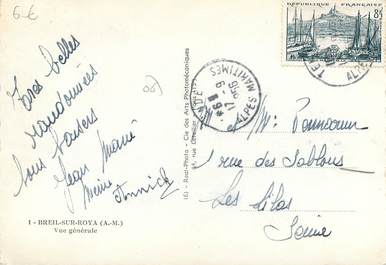 6€
Très belles
randonnées
bons baisers
Jean Marie
Annick
1 - BREIL-SUR-ROYA (A.-M.)
Vue générale
(6) - Real-Photo - Cie des Arts Photomécaniques
RÉPUBLIQUE FRANÇAISE
8f
ALPES MARITIMES
1 rue des Sablons
Les Lilas
Seine